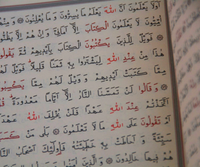 أَوَلَا يَعْلَمُونَ أَنَّ اللَّهَ يَعْلَمُ مَا يُسِرُّونَ وَمَا يُعْلِنُونَ
أُمِّيُّونَ لَا يَعْلَمُونَ الْكِتَابَ إِلَّا أَمَانِيَّ وَإِنْ هُمْ إِلَّا يَظُنُّونَ
فَوَيْلٌ لِلَّذِينَ يَكْتُبُونَ الْكِتَابَ بِأَيْدِيهِمْ ثُمَّ يَقُولُونَ
هَذَا مِنْ عِنْدِ اللَّهِ لِيَشْتَرُوا بِهِ ثَمَنًا قَلِيلًا فَوَيْلٌ
مِمَّا كَتَبَتْ أَيْدِيهِمْ وَوَيْلٌ لَهُمْ مِمَّا يَكْسِبُونَ
وَقَالُوا لَنْ تَمَسَّنَا النَّارُ إِلَّا أَيَّامًا مَعْدُودَةً
أَتَّخَذْتُمْ عِنْدَ اللَّهِ عَهْدًا فَلَنْ يُخْلِفَ اللَّهُ
أَمْ تَقُولُونَ عَلَى اللَّهِ مَا لَا تَعْلَمُونَ بَلَى مَنْ كَسَبَ
سَيِّئَةً وَأَحَاطَتْ بِهِ خَطِيئَتُهُ فَأُولَئِكَ أَصْحَابُ